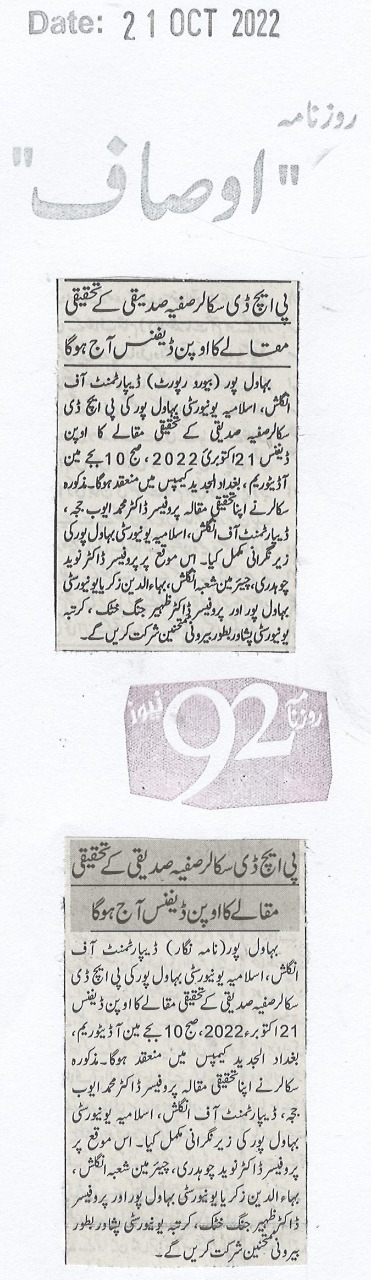 Date: 21 OCT 2022
روزنامہ
"اوصاف"
پی ایچ ڈی سکالر صفیہ صدیقی کے تحقیقی
مقالے کا اوپن ڈیفنس آج ہوگا
بہاول پور (بیورو رپورٹ) ڈیپارٹمنٹ آف
انگلش، اسلامیہ یونیورسٹی بہاول پور کی پی ایچ ڈی
سکالر صفیہ صدیقی کے تحقیقی مقالے کا اوپن
ڈیفنس 21 اکتوبر 2022، صبح 10 بجے مین
آڈیٹوریم، بغداد الجدید کیمپس میں منعقد ہوگا۔ مذکورہ
سکالر نے اپنا تحقیقی مقالہ پروفیسر ڈاکٹر محمد ایوب ججہ،
ڈیپارٹمنٹ آف انگلش، اسلامیہ یونیورسٹی بہاول پور کی
زیر نگرانی مکمل کیا۔ اس موقع پر پروفیسر ڈاکٹر نوید
چوہدری، چیئرمین شعبہ انگلش، بہاء الدین زکریا یونیورسٹی
بہاول پور اور پروفیسر ڈاکٹر ظہیر جنگ خٹک، قرطبہ
یونیورسٹی پشاور بطور بیرونی ممتحنین شرکت کریں گے۔
روزنامہ 92 نیوز
پی ایچ ڈی سکالر صفیہ صدیقی کے تحقیقی
مقالے کا اوپن ڈیفنس آج ہوگا
بہاول پور (نامہ نگار) ڈیپارٹمنٹ آف
انگلش، اسلامیہ یونیورسٹی بہاول پور کی پی ایچ ڈی
سکالر صفیہ صدیقی کے تحقیقی مقالے کا اوپن ڈیفنس
21 اکتوبر 2022ء، صبح 10 بجے مین آڈیٹوریم،
بغداد الجدید کیمپس میں منعقد ہوگا۔ مذکورہ
سکالر نے اپنا تحقیقی مقالہ پروفیسر ڈاکٹر محمد ایوب
ججہ، ڈیپارٹمنٹ آف انگلش، اسلامیہ یونیورسٹی
بہاول پور کی زیر نگرانی مکمل کیا۔ اس موقع پر
پروفیسر ڈاکٹر نوید چوہدری، چیئرمین شعبہ انگلش،
بہاء الدین زکریا یونیورسٹی بہاول پور اور پروفیسر
ڈاکٹر ظہیر جنگ خٹک، قرطبہ یونیورسٹی پشاور بطور
بیرونی ممتحنین شرکت کریں گے۔